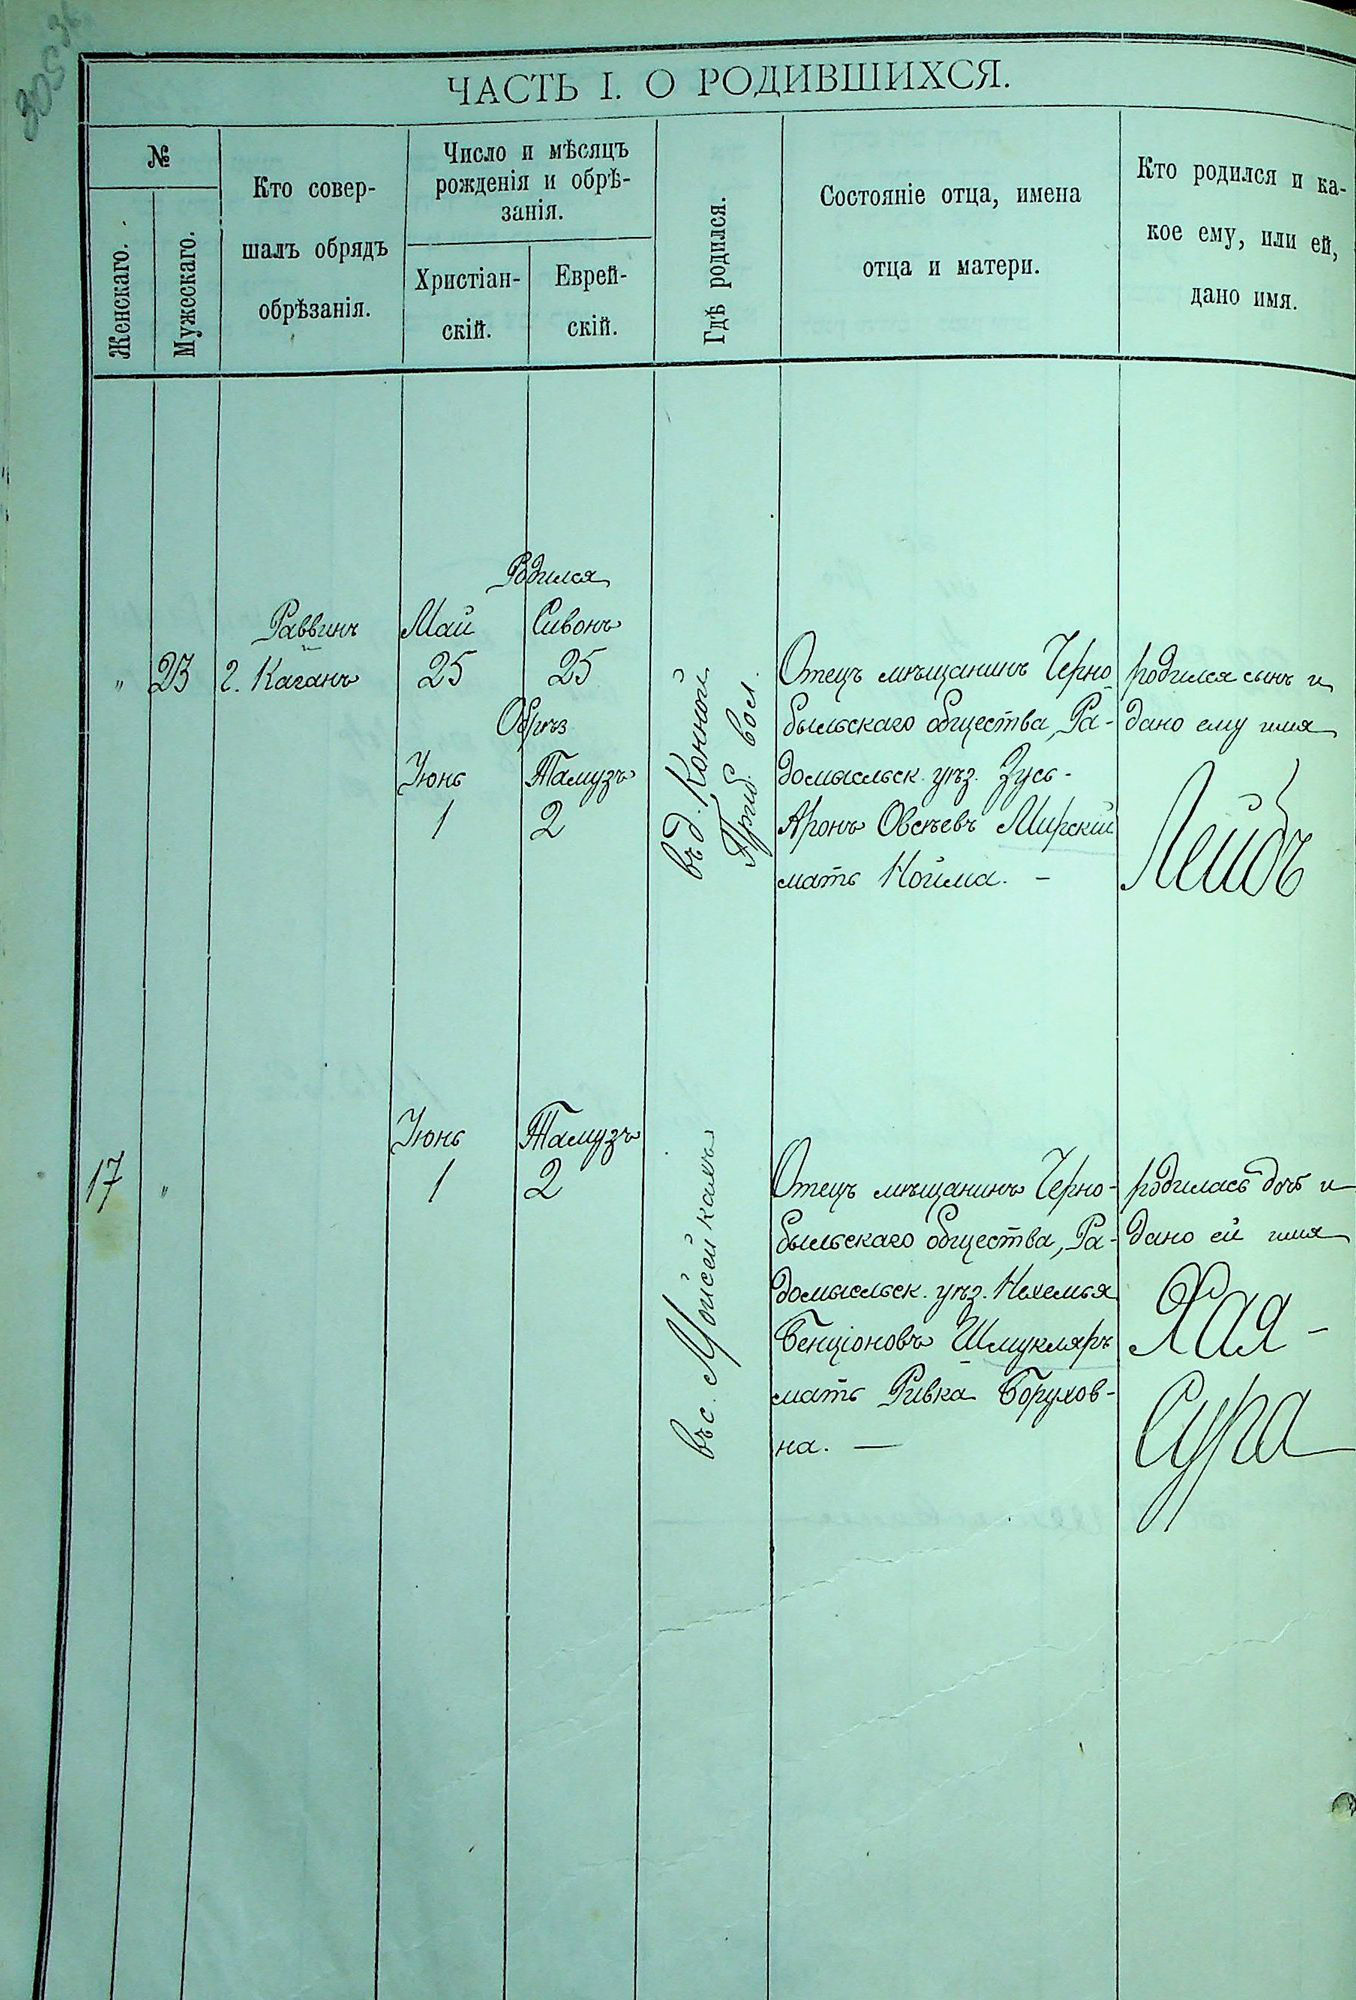 305
ЧАСТЬ I. О РОДИВШИХСЯ.
№
Женскаго.
Мужескаго.
Кто совер-
шалъ обрядъ
обрѣзанія.
Число и мѣсяцъ
рожденія и обрѣ-
занія.
Христіан-
скій.
Еврей-
скій.
Гдѣ родился.
Состояніе отца, имена
отца и матери.
Кто родился и ка-
кое ему, или ей,
дано имя.
"
23
Раввинъ
г. Каганъ
Родился
Май Сивонъ
25 25
Обрѣз
Іюнь Тамузъ
1 2
въ д. Конной
Приб. вол.
Отецъ мѣщанинъ Черно
быльскаго общества, Ра-
домысльск. уѣз. Зусь-
Аронъ Овсѣевъ Мирскій
мать Нойма. —
родился сынъ и
дано ему имя
Лейбъ
17
"
Іюнь Тамузъ
1 2
въ с. Мойсейкахъ
Отецъ мѣщанинъ Черно-
быльскаго общества, Ра-
домысльск. уѣз. Нехемья
Бенціоновъ Шмукляръ
мать Ривка Борухов-
на. —
родилась дочь и
дано ей имя
Хая-
Сура